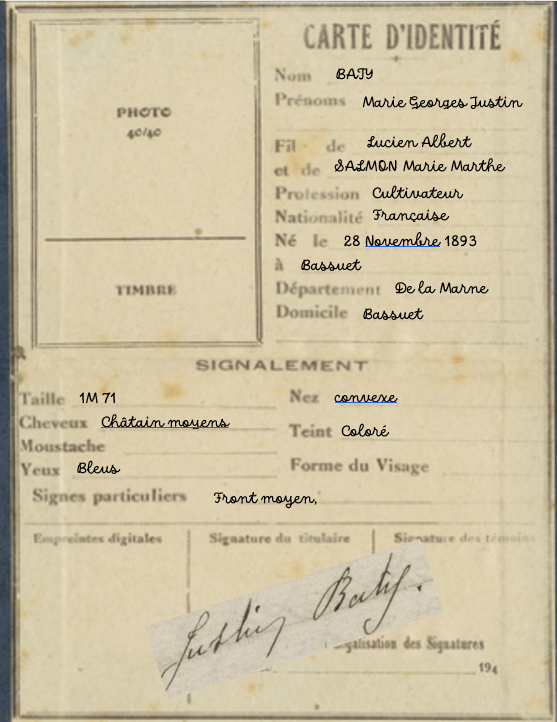 CARTE D'IDENTITÉ
PHOTO
40/40
TIMBRE
Nom BATY
Prénoms Marie Georges Justin
Fil de Lucien Albert
et de SALMON Marie Marthe
Profession Cultivateur
Nationalité Française
Né le 28 Novembre 1893
à Bassuet
Département De la Marne
Domicile Bassuet
SIGNALEMENT
Taille 1M 71
Cheveux Châtain moyens
Moustache
Yeux Bleus
Nez convexe
Teint Coloré
Forme du Visage
Signes particuliers Front moyen,
Empreintes digitales
Signature du titulaire
Signature des témoins
Justin Baty.
des Signatures
194